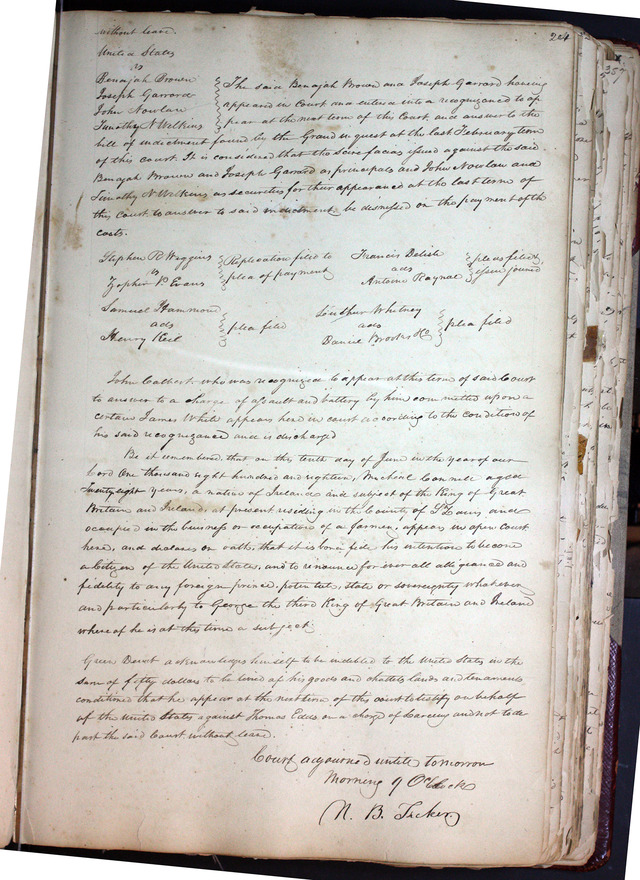 224
without leave.
United States
vs
Benajah Brown
Joseph Garrard
John Nowlan
Timothy N Wilkins
The said Benajah Brown and Joseph Garrard having
appeared in Court and entered into a recognizance to ap
pear at the next term of this Court, and answer to the
bill of indictment found by the Grand inquest at the last February term
of this court. It is considered that the scire facias issued against the said
Benajah Brown and Joseph Garrard as principals and John Nowlan and
Timothy N Wilkins as securities for their appearance at the last term of
this Court to answer to said indictment, be dismissed on the payment of the
costs.
Stephen R Wiggins
vs
Zephir P Evans
Replication filed to
plea of payment
Francis Delisle
ads
Antoine Raynal
pleas filed
issue joined
Samuel Hammond
ads
Henry Keil
plea filed
Whitney
ads
Daniel Brooks &Co
plea filed
John Calbert who was recognized to appear at this term of said Court
to answer to a charge of assault and battery by him committed upon a
certain James White appears here in court according to the condition of
his said recognizance and is discharged
Be it remembered, that on this tenth day of June in the year of our
Lord One thousand eight hundred and eighteen, Michael Conner aged
Twenty eight years, a native of Ireland and subject of the King of Great
Britain and Ireland, at present residing in the County of St Louis and
occupied in the business or occupation of a farmer, appears in open Court
here, and declares on oath, that it is bona fide his intention to become
a Citizen of the United States, and to renounce for ever all allegiance and
fidelity to any foreign prince, potentate, state or sovereignty whatever
and particularly to George the third King of Great Britain and Ireland
whereof he is at this time a subject.
Green Dewit acknowledges himself to be indebted to the United States in the
sum of fifty dollars to be levied of his goods and chattels lands and tenements
conditioned that he appear at the next term of this court to testify on behalf
of the United States against Thomas Edds on a charge of Larceny and not to de
part the said Court without leave.
Court adjourned until tomorrow
Morning 9 OClock
N. B. Tucker